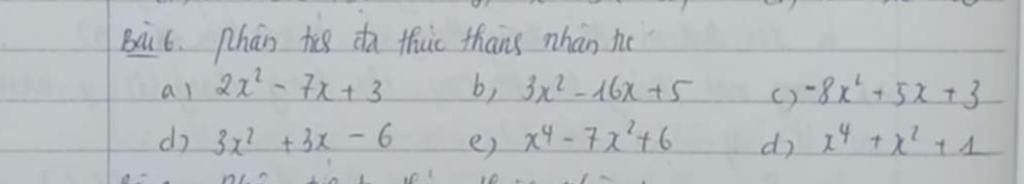 Bài 6. Phân tích đa thức thành nhân tử
a) 2x² - 7x + 3 b, 3x² - 16x + 5 c) -8x² + 5x + 3
d) 3x² + 3x - 6 e) x⁴ - 7x² + 6 d) x⁴ + x² + 1